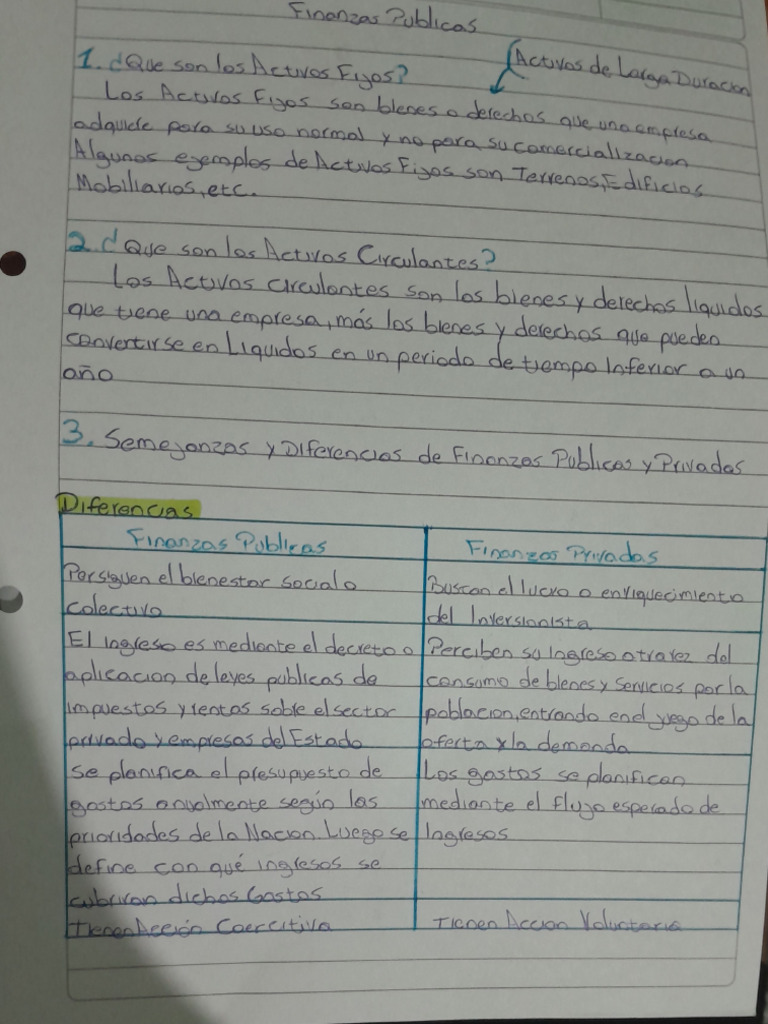 Finanzas Publicas
1. ¿Que son los Activos Fijos?
Activos de Larga Duracion
Los Activos Fijos son bienes o derechos que una empresa
adquiere para su uso normal y no para su comercializacion
Algunos ejemplos de Activos Fijos son Terrenos, Edificios
Mobiliarios, etc.
2. ¿Que son los Activos Circulantes?
Los Activos circulantes son los bienes y derechos liquidos
que tiene una empresa, más los bienes y derechos que pueden
convertirse en Liquidos en un periodo de tiempo Inferior a un
año
3. Semejanzas y Diferencias de Finanzas Publicas y Privadas
Diferencias
Finanzas Publicas
Finanzas Privadas
Persiguen el bienestar social o
colectivo
Buscan el lucro o enriquecimiento
del Inversionista
El Ingreso es mediante el decreto o
aplicacion de leyes publicas de
impuestos y rentas sobre el sector
privado y empresas del Estado
Perciben su ingreso a travez del
consumo de bienes y servicios por la
poblacion, entrando en el juego de la
oferta y la demanda
Se planifica el presupuesto de
gastos anualmente según las
prioridades de la Nacion. Luego se
define con qué ingresos se
cubriran dichos Gastos
Los gastos se planifican
mediante el flujo esperado de
Ingresos
Tienen Acción Coercitiva
Tienen Accion Voluntaria